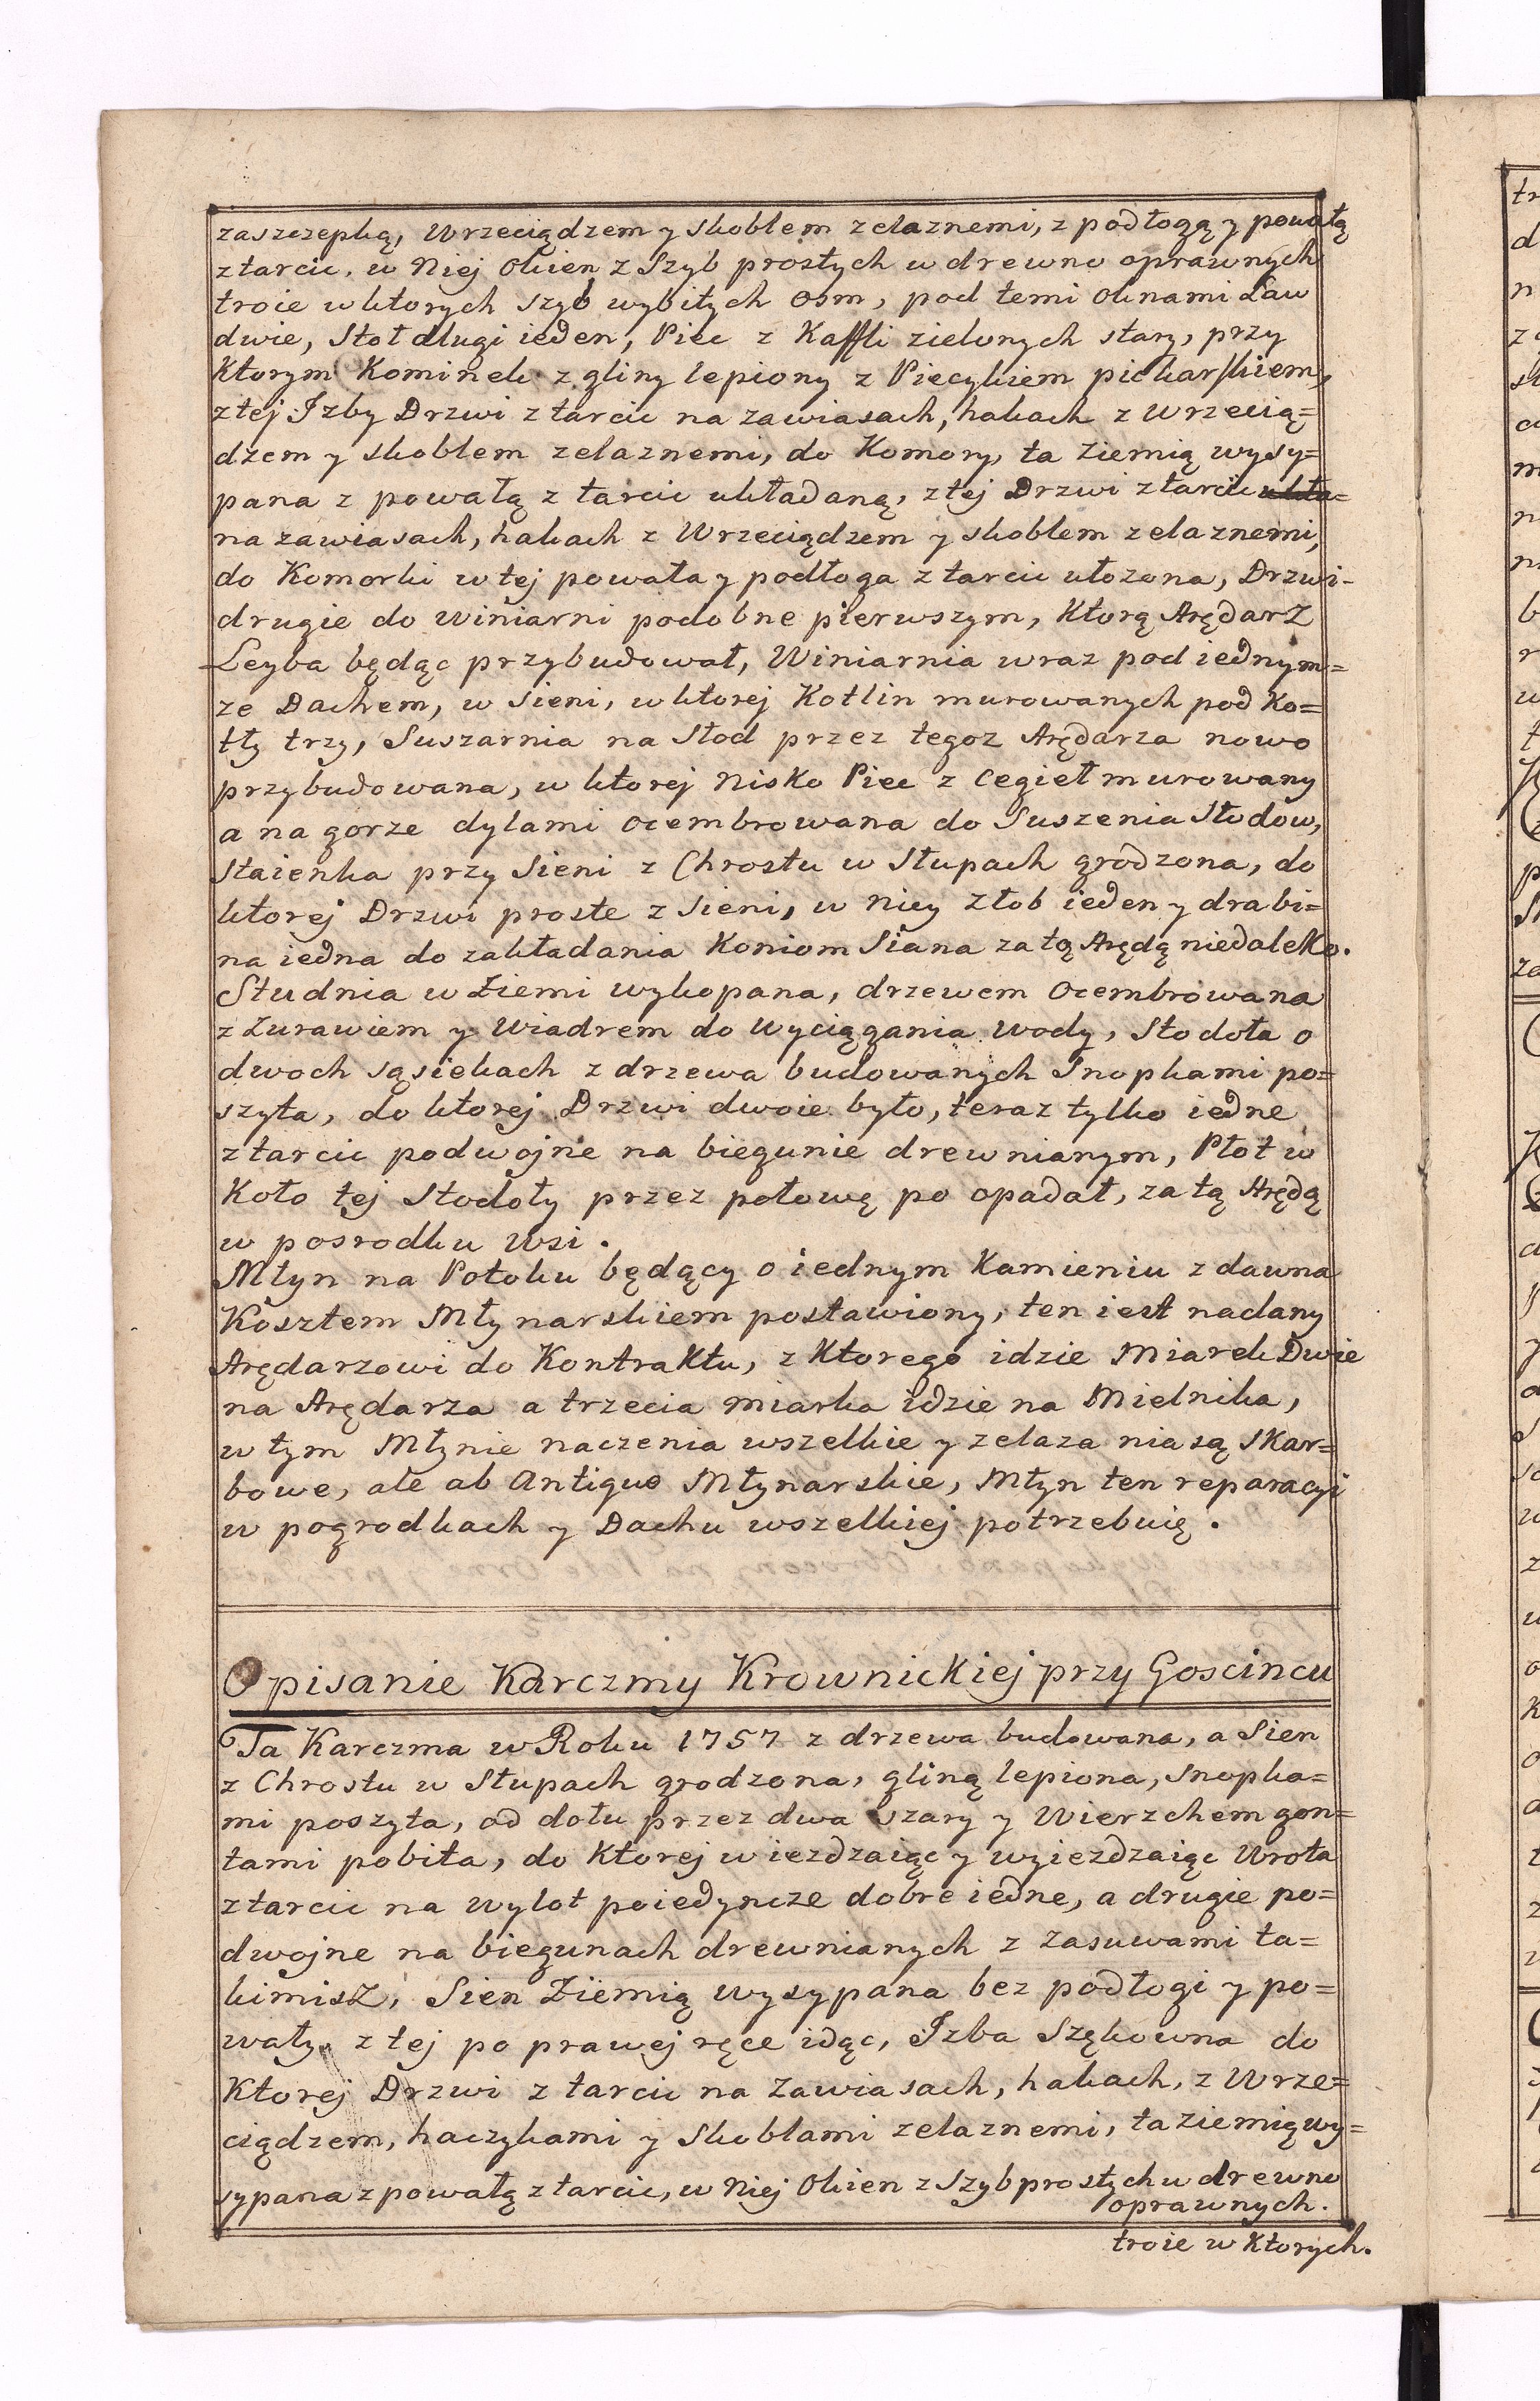 zaszczepką, Wrzeciądzem y skoblem zelaznemi, z podłogą y powałą
z tarcic, w Niej Okien z Szyb prostych w drewno oprawnych
troie w ktorych szyb wybitych osm, pod temi Oknami Law
dwie, Stoł dlugi ieden, Piec z Kaffli zielonych stary, przy
Ktorym Kominek z gliny lepiony z Piecykiem piekarskiem,
z tej Izby Drzwi z tarcic na zawiasach, hakach z Wrzecią=
dzem y skoblem zelaznemi, do Komory, ta Ziemią wysy=
pana z powałą z tarcic układaną, z tej Drzwi z tarcic ukła=
na zawiasach, hakach z Wrzeciądzem y skoblem zelaznemi,
do Komorki w tej powała y podłoga z tarcic ułozona, Drzwi-
drugie do Winiarni podobne pierwszym, Ktorą Arędarz
Leyba będąc przybudował, Winiarnia wraz pod iednym=
ze Dachem, w Sieni, w ktorej Kotlin murowanych pod Ko=
tły trzy, Suszarnia na Słod przez tegoz Arędarza nowo
przybudowana, w ktorej Nisko Piec z cegieł murowany
a na gorze dylami ocembrowana do Suszenia Słodow,
Staienka przy Sieni z Chrostu w Słupach grodzona, do
ktorej Drzwi proste z Sieni, w Niey Złob ieden y drabi=
na iedna do zakładania Koniom Siana za tą Arędą niedaleko.
Studnia w Ziemi wykopana, drzewem Ocembrowana
z Zurawiem y Wiadrem do Wyciągania Wody, Stodoła o
dwoch sąsiekach z drzewa budowanych Snopkami po=
szyta, do ktorej Drzwi dwoie było, teraz tylko iedne
z tarcic podwojne na biegunie drewnianym, Płot w
Koło tej Stodoły przez połowę po opadał, za tą Arędą
w posrodku Wsi.
Młyn na Potoku będący o iednym Kamieniu z dawna
Kosztem Młynarskiem postawiony, ten iest nadany
Arędarzowi do Kontraktu, z Ktorego idzie Miarek Dwie
na Arędarza a trzecia miarka idzie na Mielnika,
w tym Młynie naczenia wszelkie y zelaza nia są Skar=
bowe, ale ab Antiquo Młynarskie, Młyn ten reparacyi
w pogrodkach y Dachu wszelkiej potrzebuię.
Opisanie Karczmy Krownickiej przy Goscincu
Ta Karczma w Roku 1757 z drzewa budowana, a Sien
z Chrostu w Słupach grodzona, gliną lepiona, Snopka=
mi poszyta, od dołu przez dwa szary y Wierzchem gon=
tami pobita, do Ktorej wiezdzaiąc y wyiezdzaiąc Wrota
z tarcic na wylot poiedyncze dobre iedne, a drugie po=
dwojne na biegunach drewnianych z Zasuwami ta=
kimisz, Sien Ziemią wysypana bez podłogi y po=
wały, z tej po prawej ręce idąc, Izba Szękowna do
Ktorej Drzwi z tarcic na Zawiasach, hakach, z Wrze=
ciądzem, haczykami y Skoblami zelaznemi, ta ziemią wy=
sypana z powałą z tarcic, w Niej Okien z Szyb prostych w drewno
oprawnych.
troie w Ktorych.